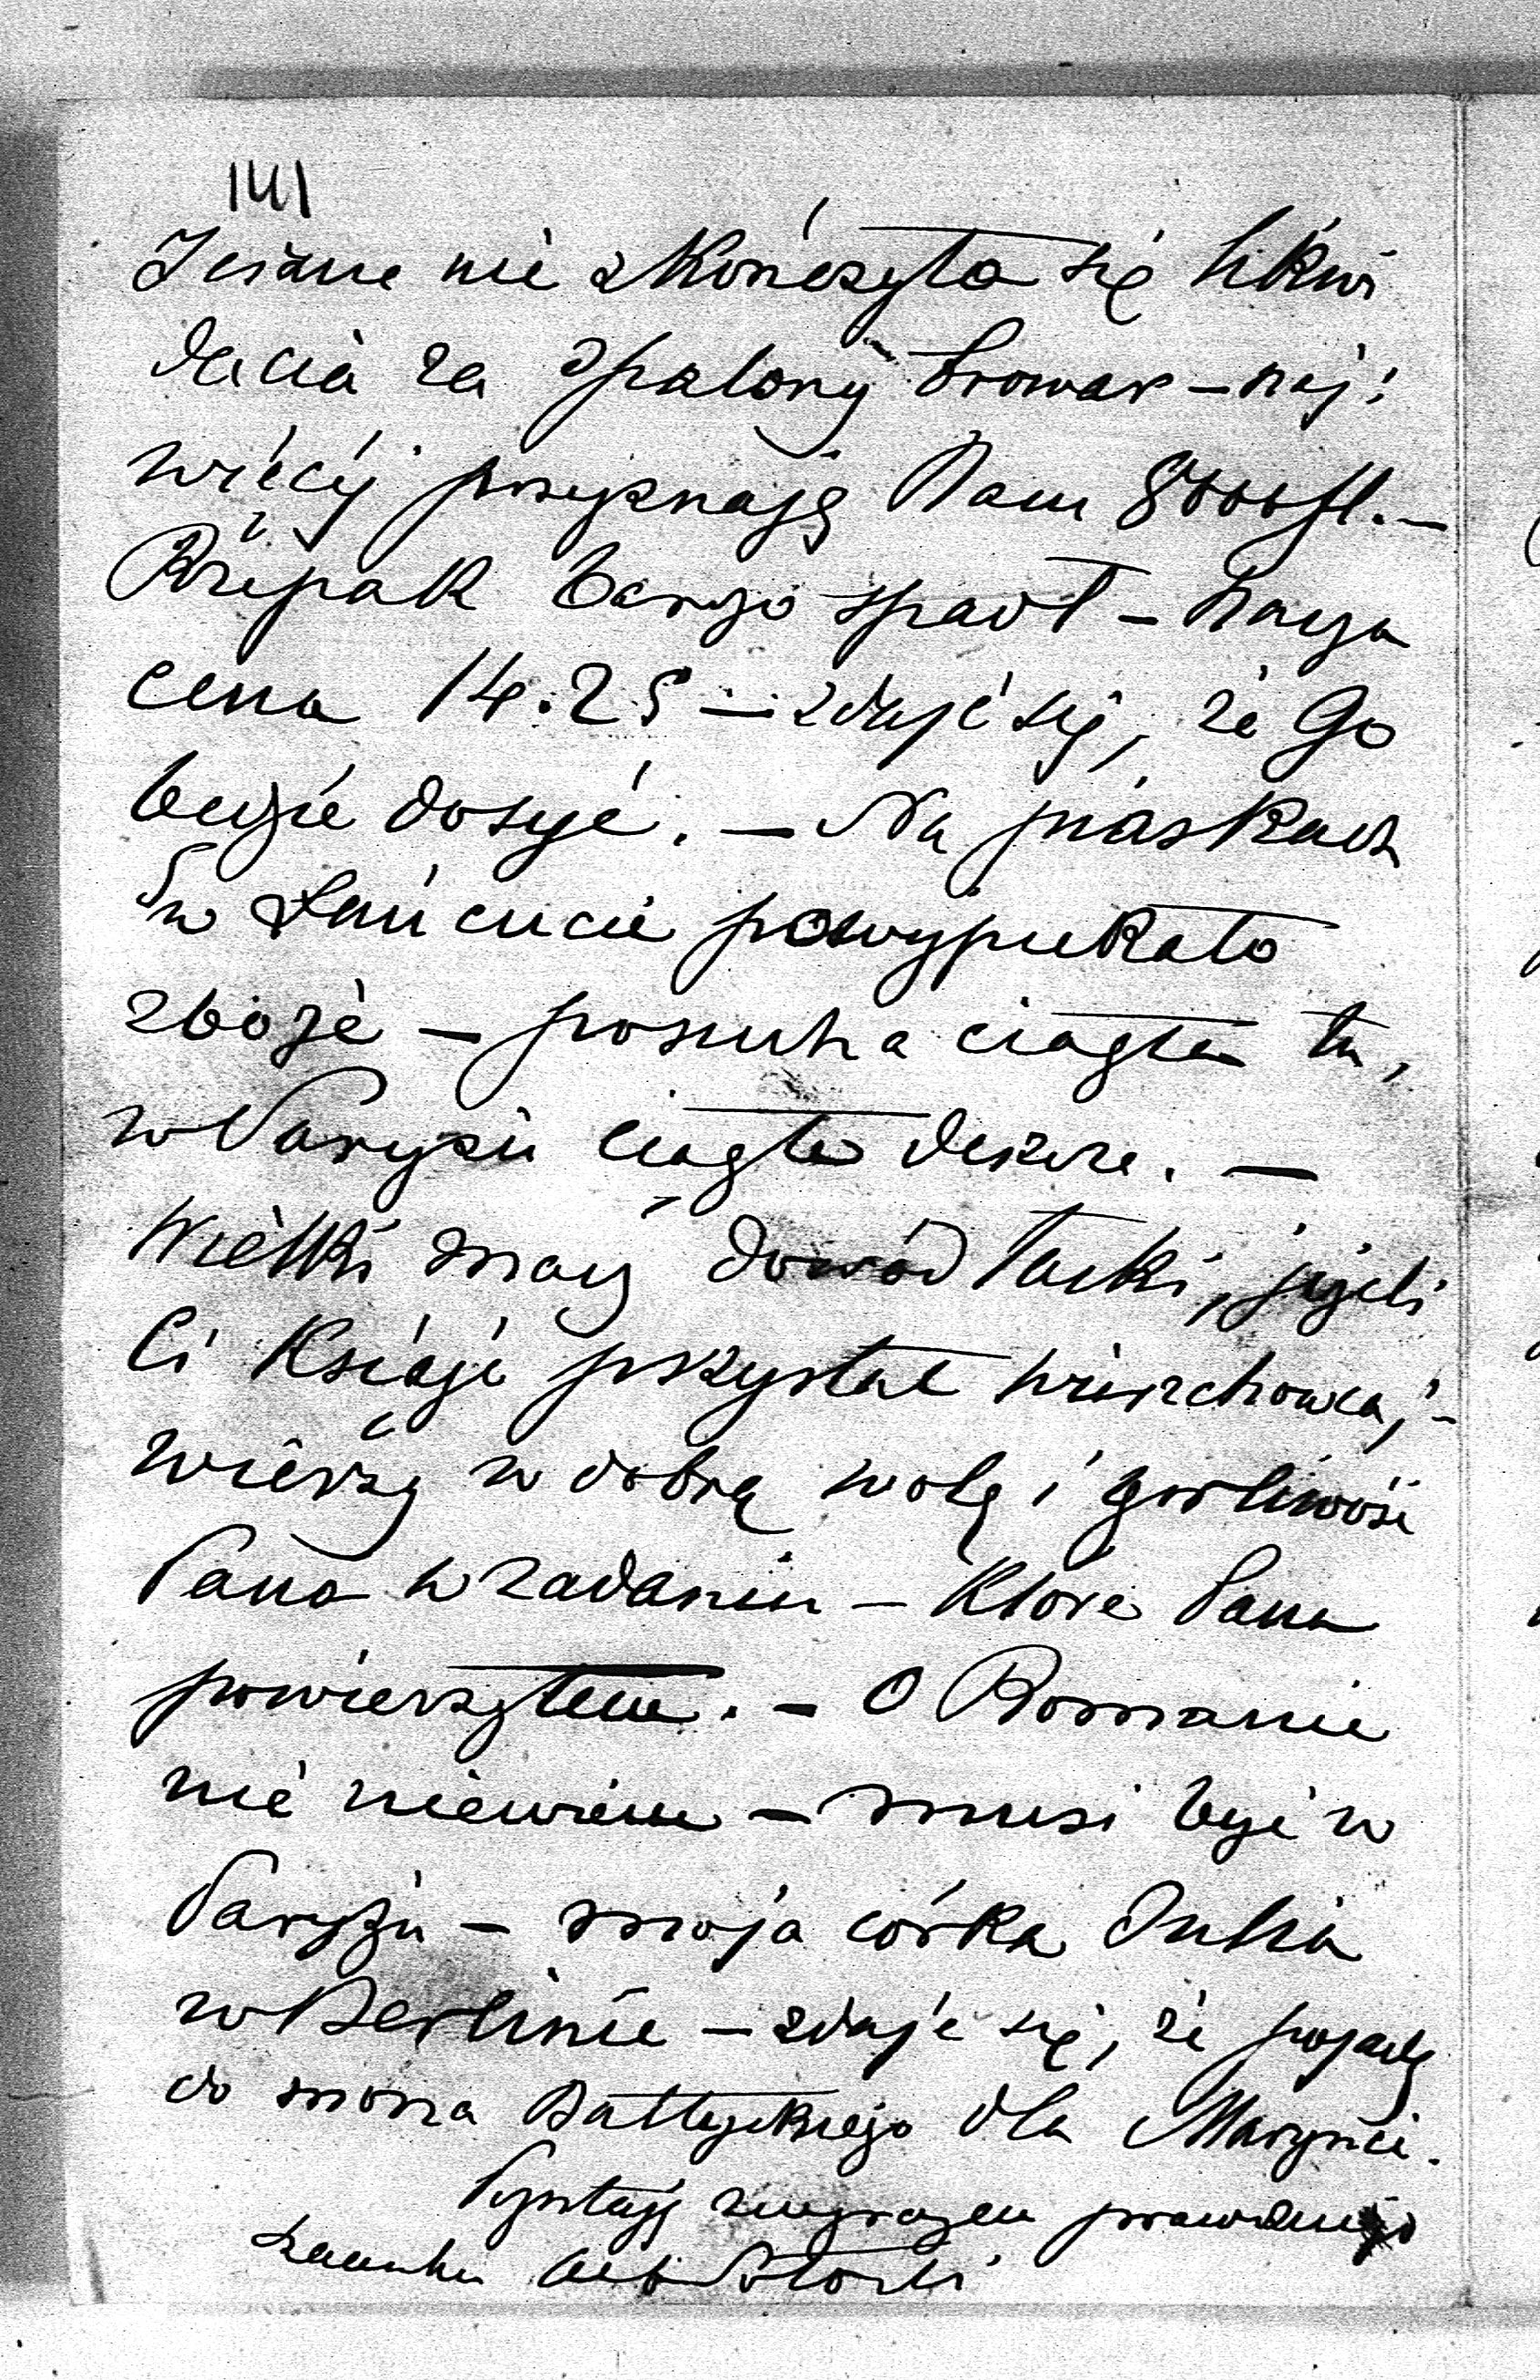 141
Jeszcze nie zkończyła się likwi
dacia za spalony browar – naj:
więcej przyznają Nam 8000 fl. –
Rzepak barzo spadł –
cena 14.25 – zdaje się, że Go
będzie dosyć. – Na piaskach
w Łańcucie powypiekało
zboże – posucha ciągła tu,
w Paryżu ciągłe deszcze. –
Wielki masz dowód łaski, jeżeli
Ci Książe przysłał wierzchowca, –
wierzę w dobrą wolę i gorliwość
Pana w zadaniu – które Panu
powierzyłem. – O Romanie
nic niewiem – musi być w
Paryżu – moja córka Julia
w Berlinie – zdaje się, że pojadę
do morza Bałtyckiego dla Maryni.
Zostaję z wyrazem prawdziwego
szacunku Potocki